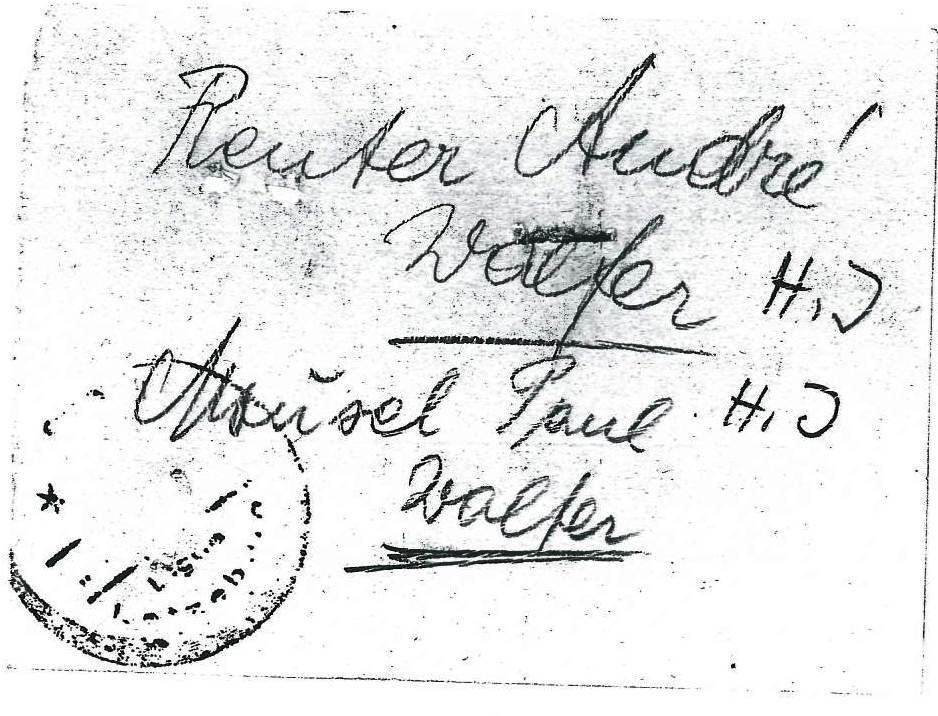 Reuter André
Walfer H.J
Mousel Paul H.J
Walfer